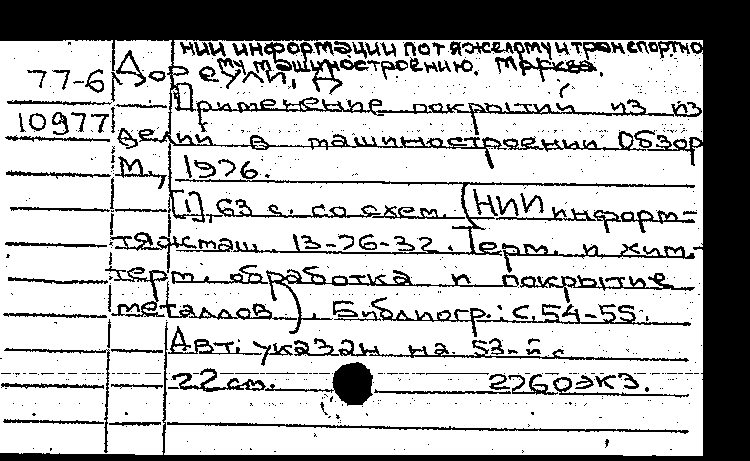 НИИ информации по тяжелому и транспортно
му машиностроению. Марква.
77-6 Дор
10977
Применение покрытий из из
делий в машиностроении. Обзор
М., 1976.
[1], 63 с. со схем. (НИИ информ-
тяжмаш. 13-76-32. Терм. и хим.-
терм. обработка и покрытие
металлов). Библиогр.: с. 54-55.
Авт. указан на 53-й с
22 см. 2760 экз.